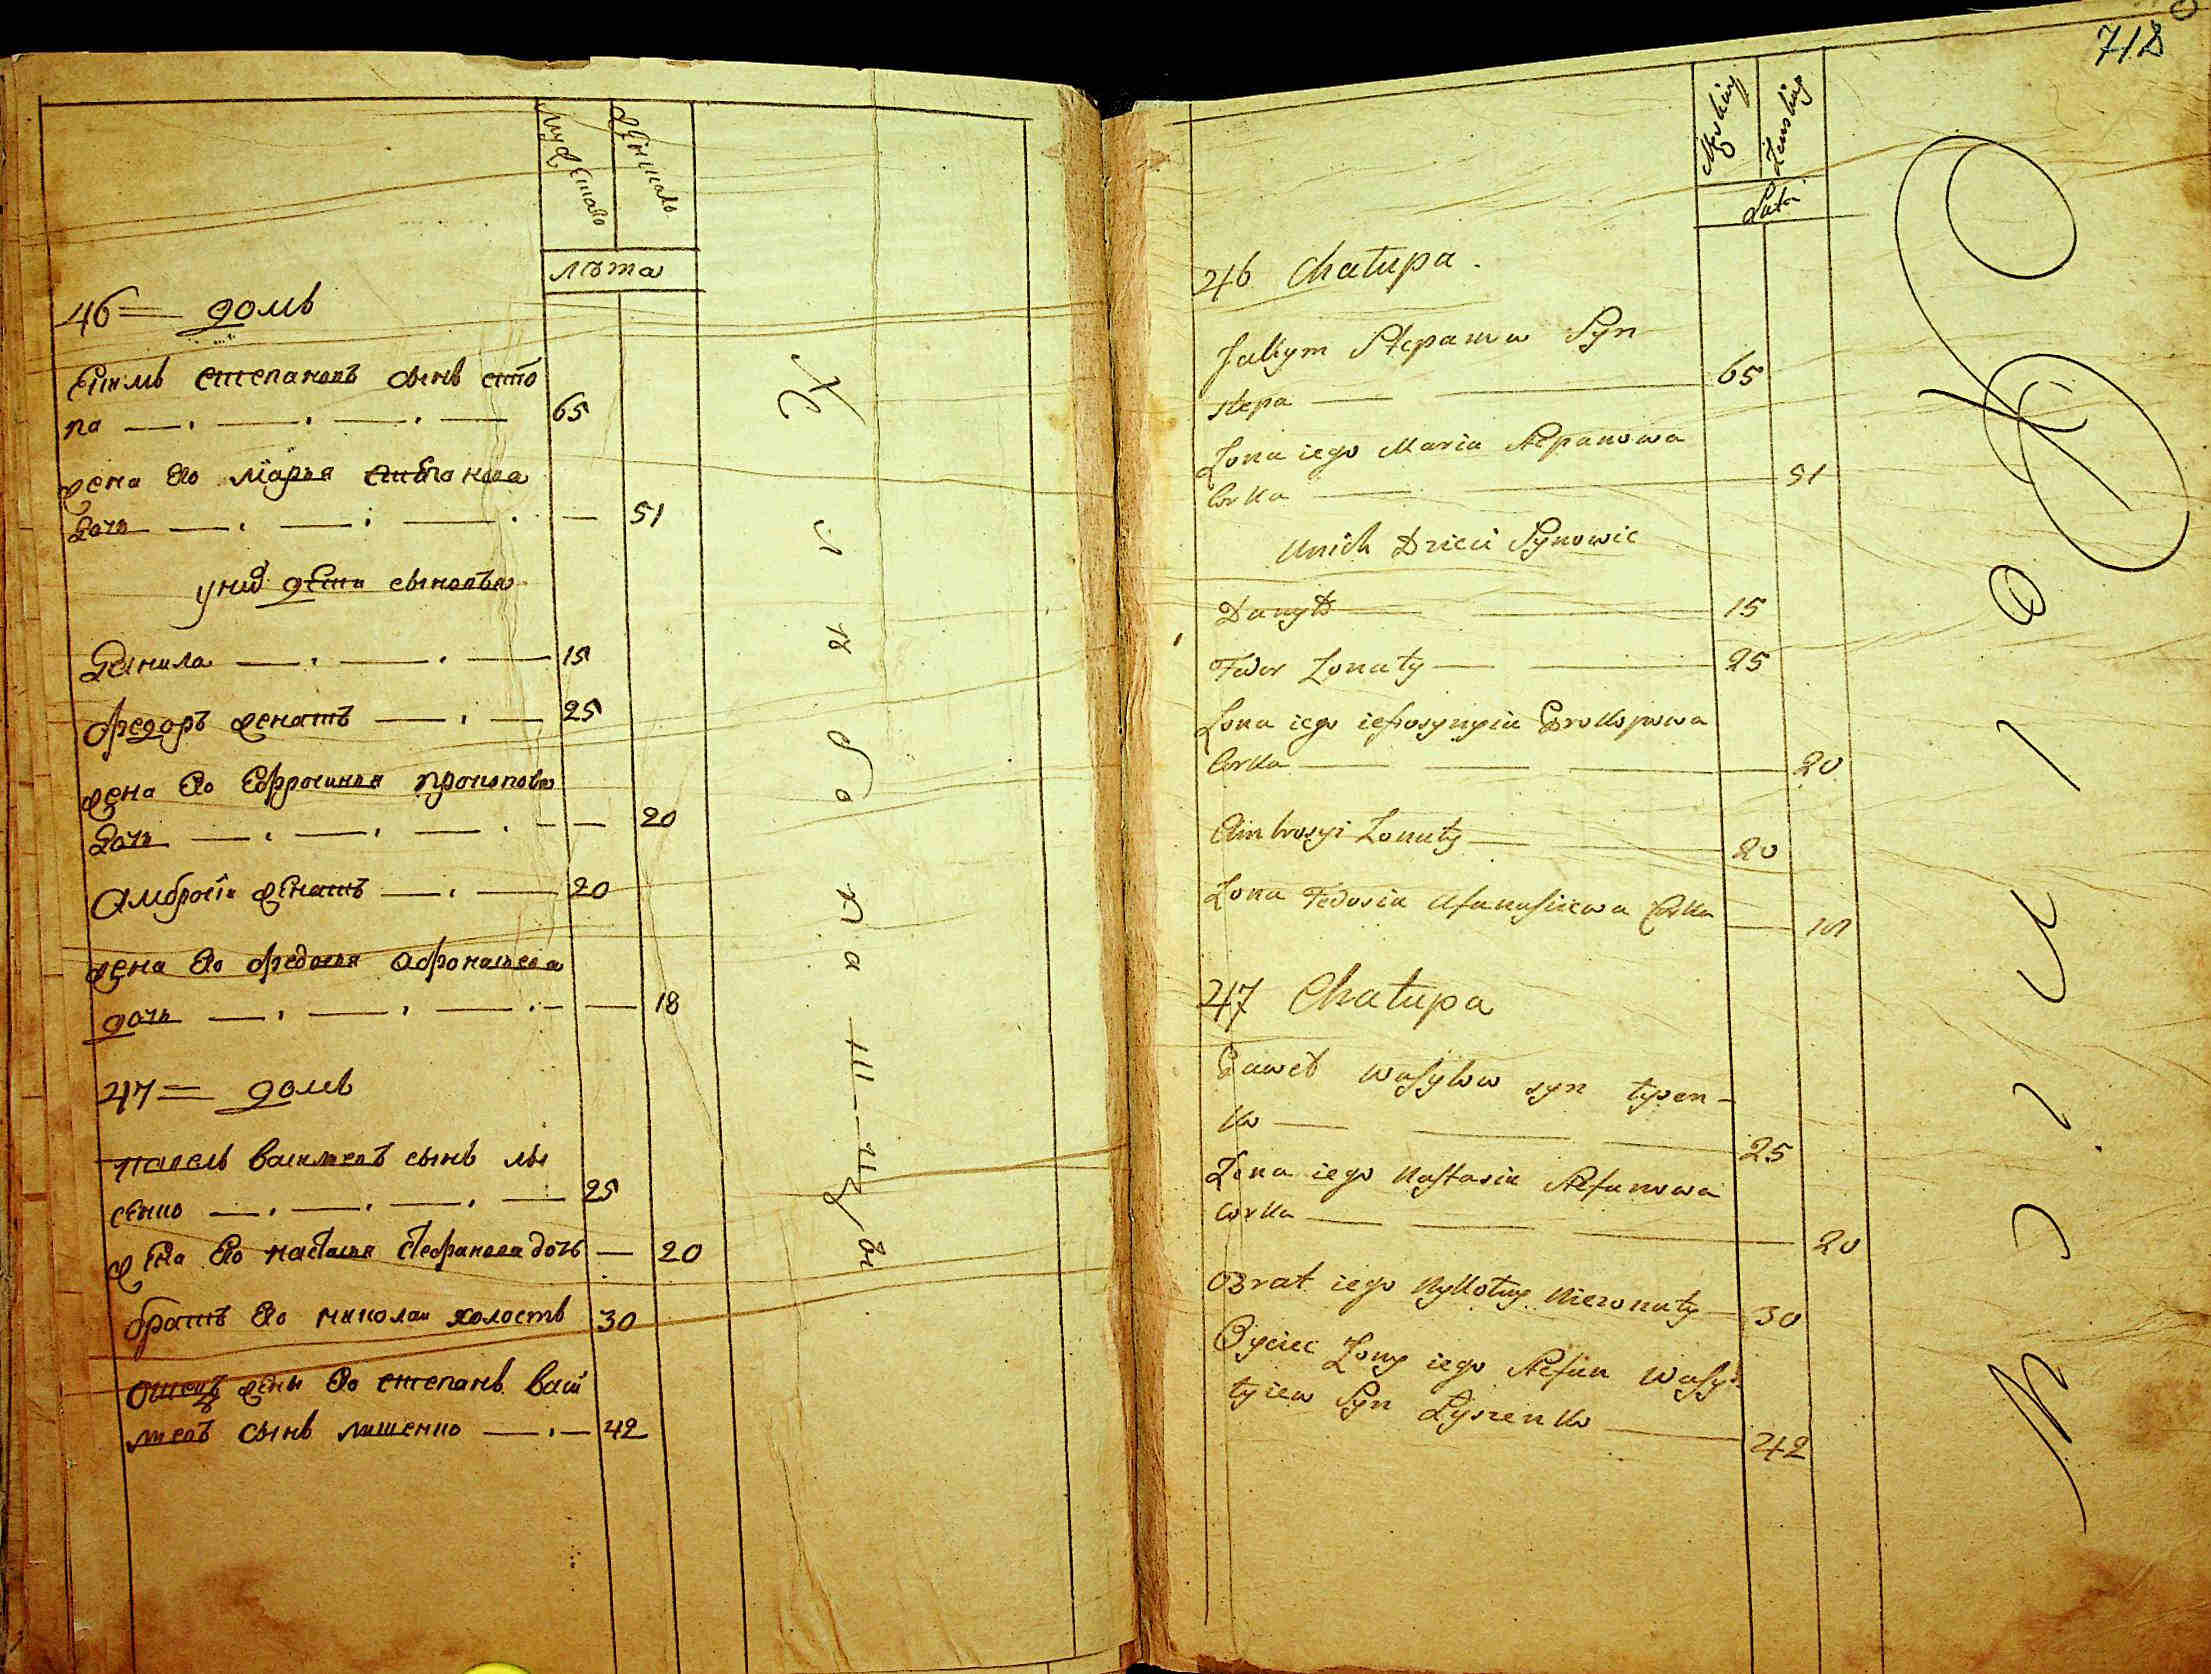 мужеска
женска
лѣта
46 = домъ
Екимъ степановъ сынъ сто
па 65
жена его марья степанова
дочь 51
у них дети сыновья
Данила 15
Федоръ женатъ 25
жена его Ефросинья прокопова
дочь 20
Амбросiи женатъ 20
жена его федосья афонасьева
дочь 18
47 = домъ
павелъ васильевъ сынъ лы
сенко 25
жена его настасья стефанова дочь 20
братъ его николаи холостъ 30
отецъ жены его степанъ васи
льевъ сынъ лишенко 42
718
Męskiey
Zenskiey
Lata
46 Chałupa.
Jakym Stepanow Syn
stepa 65
Zona iego Maria Stepanowa
Corka 51
U nich Dzieci Synowie
Danyło 15
Fedor Zonaty 25
Zona iego iefrosynyia Prokopowa
Corka 20
Ambrosyi Zonaty 20
Zona Fedosia Afanasiiewa Corka 18
47 Chałupa
Paweł Wasylow syn łysen-
ko 25
Zona iego Nastasia Stefanowa
Corka 20
Brat iego Mykołay Niezonaty 30
Oyciec Zony iego Stefan Wasy-
łyiew Syn Łyszenko 42